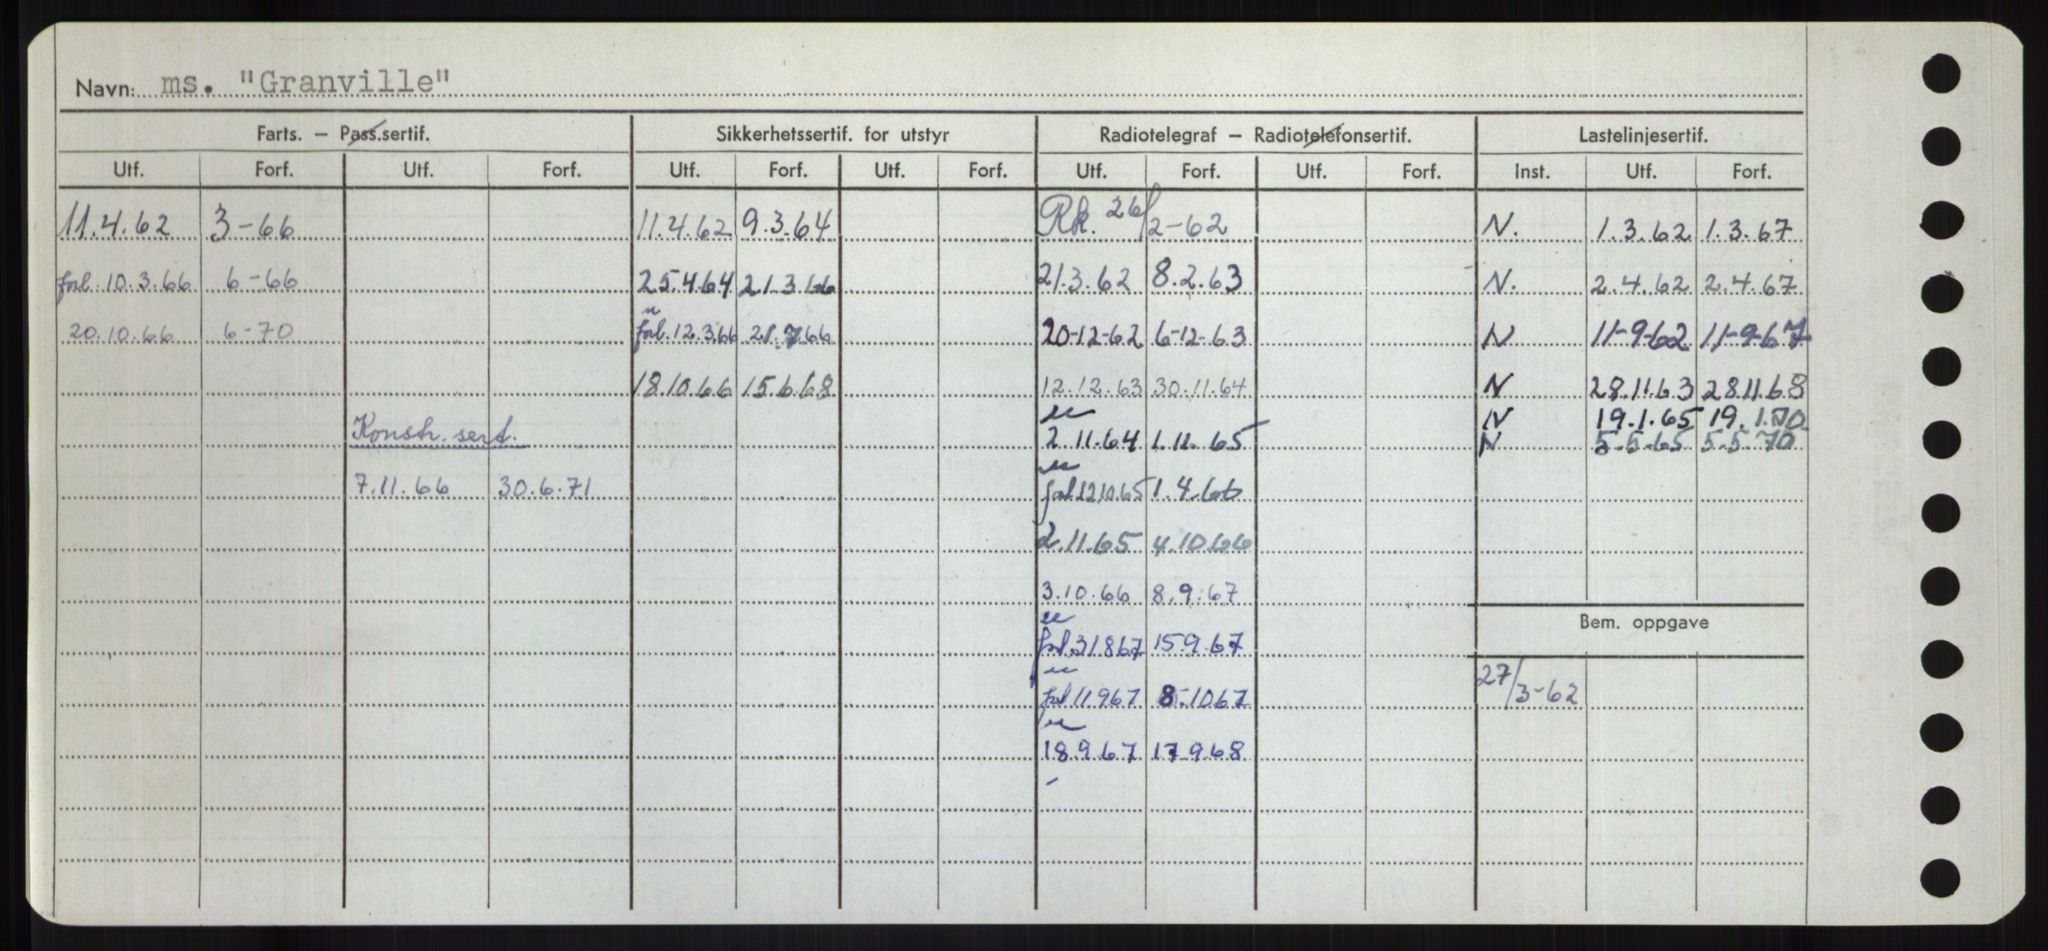 Navn: ms. "Granville"
Farts. — Pass.sertif. Sikkerhetssertif. for utstyr Radiotelegraf — Radiotelefonsertif. Lastelinjesertif.
Utf. Forf. Utf. Forf. Utf. Forf. Utf. Forf. Utf. Forf. Utf. Forf. Inst. Utf. Forf.
11.4.62 3-66 11.4.62 9.3.64 Rk. 26/2-62 N. 1.3.62 1.3.67
forl. 10.3.66 6-66 25.4.64 21.3.66 21.3.62 8.2.63 N. 2.4.62 2.4.67
20.10.66 6-70 forl. 12.3.66 21.7.66 20-12-62 6-12-63 N 11-9-62 11-9-67
18.10.66 15.6.68 12.12.63 30.11.64 N 28.11.63 28.11.68
N 19.1.65 19.1.70
Konstr. sert. 2.11.64 1.11.65 N 5.5.65 5.5.70
7.11.66 30.6.71 forl 12.10.65 1.4.66
2.11.65 4.10.66
3.10.66 8.9.67
Bem. oppgave
forl 31.8.67 15.9.67
forl 11.9.67 8.10.67 27/3-62
18.9.67 17.9.68